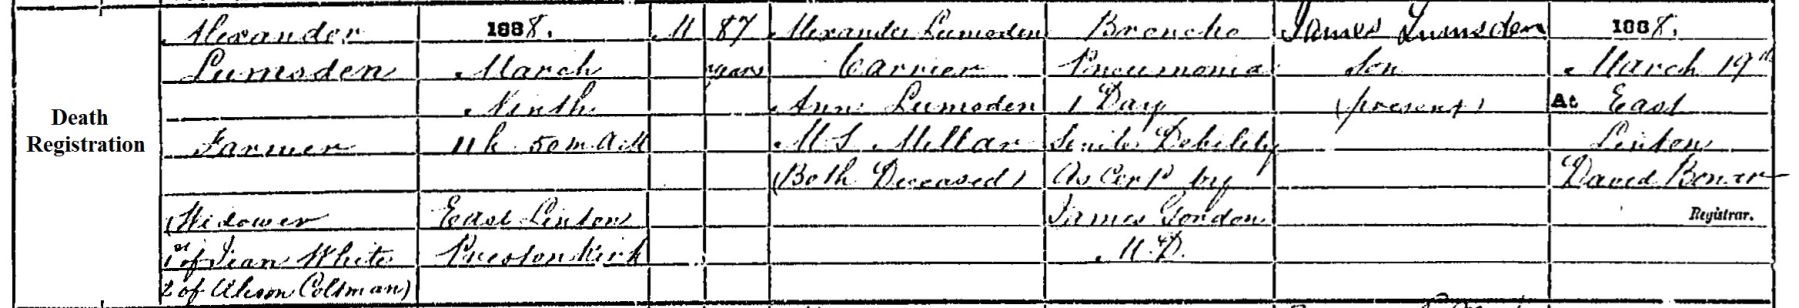 Death
Registration
Alexander
Lumsden
Farmer
(Widower
1st of Jean White
2 of Alison Coltman)
1888.
March
Ninth
11 h 50 m A M
East Linton
Prestonkirk
M
87
years
Alexander Lumsden
Carrier
Ann Lumsden
M S Millar
(Both Deceased)
Broncho
Pneumonia
1 Day
Senile Debility
As Cert by
James Gordon
M.D.
James Lumsden
Son
(present)
1888.
March 19th
At East
Linton
David Bonar
Registrar.